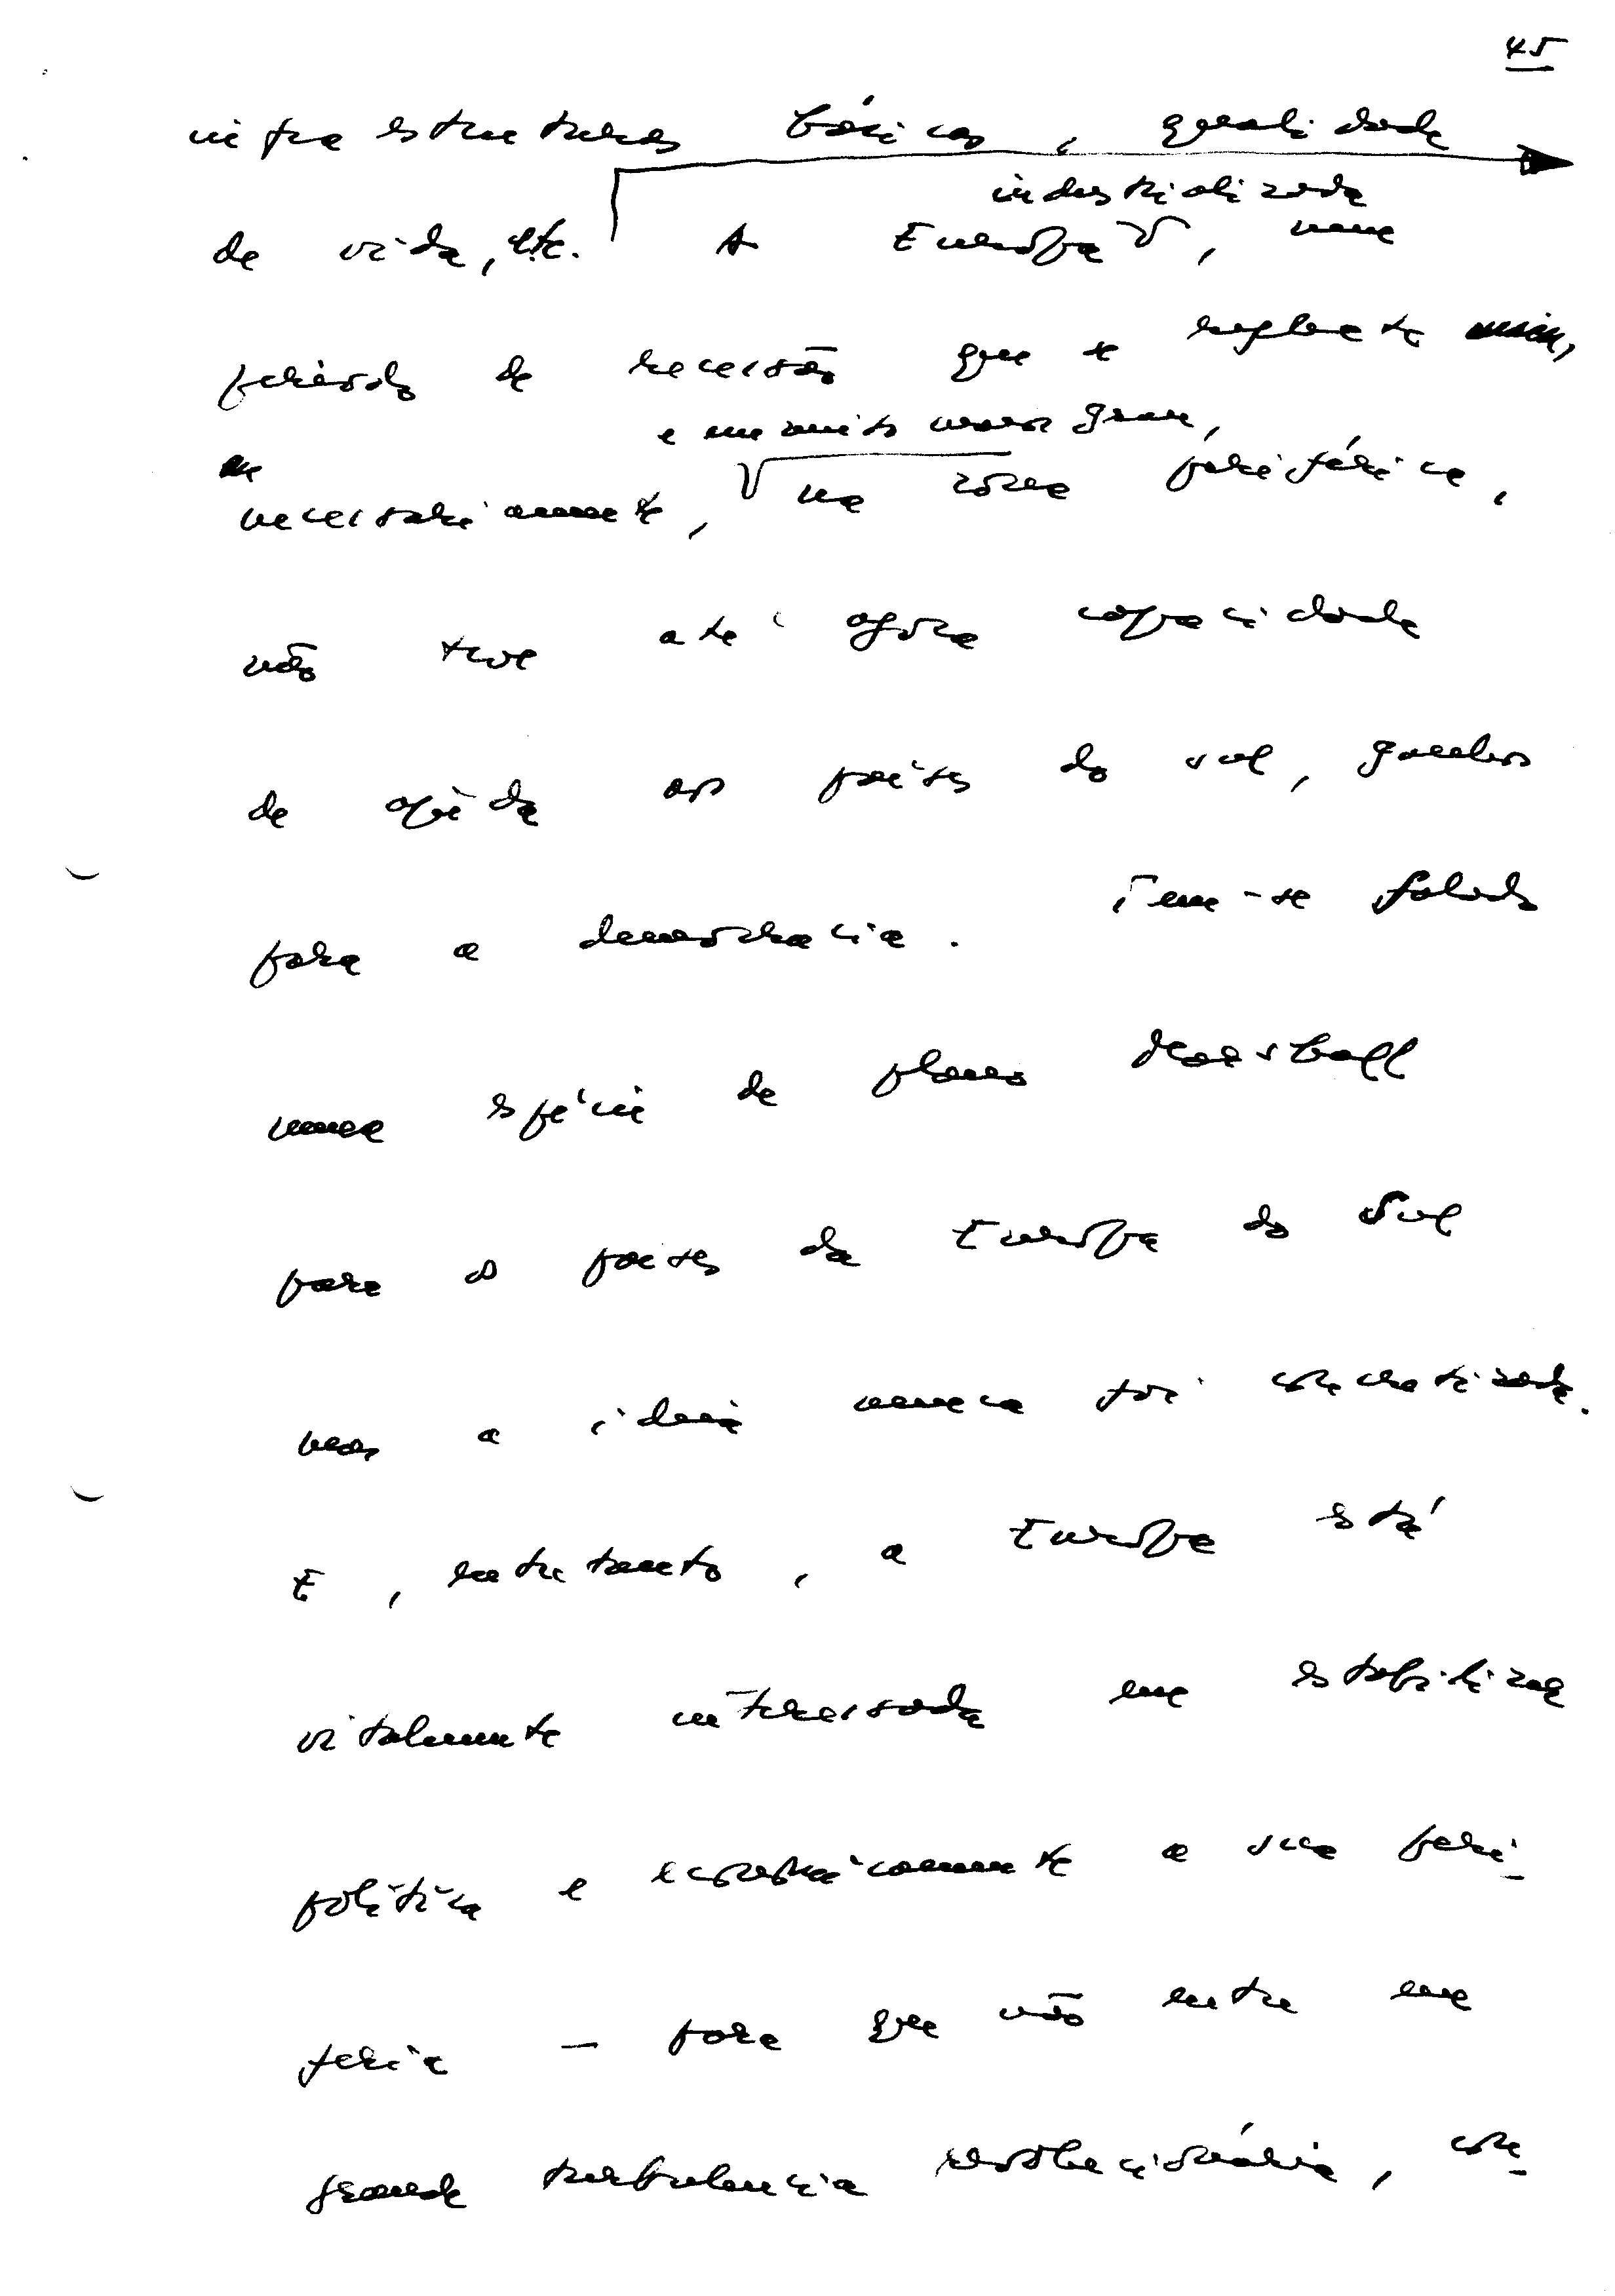 45
infraestruturas básicas, qualidade
industrializada
de vida, etc. A Europa, num
período de recessão que se reflecte
e muito mais grave,
necessariamente, na zona periférica,
não teve até agora capacidade
de ajuda aos países do sul, ganhos
para a democracia. Tem-se falado
numa espécie de plano Marshall
para os países da Europa do Sul
mas a ideia nunca foi concretizada.
E, entretanto, a Europa está
vitalmente interessada em estabilizar
política e economicamente a sua peri-
feria — para que não entre em
grande turbulência revolucionária, con-